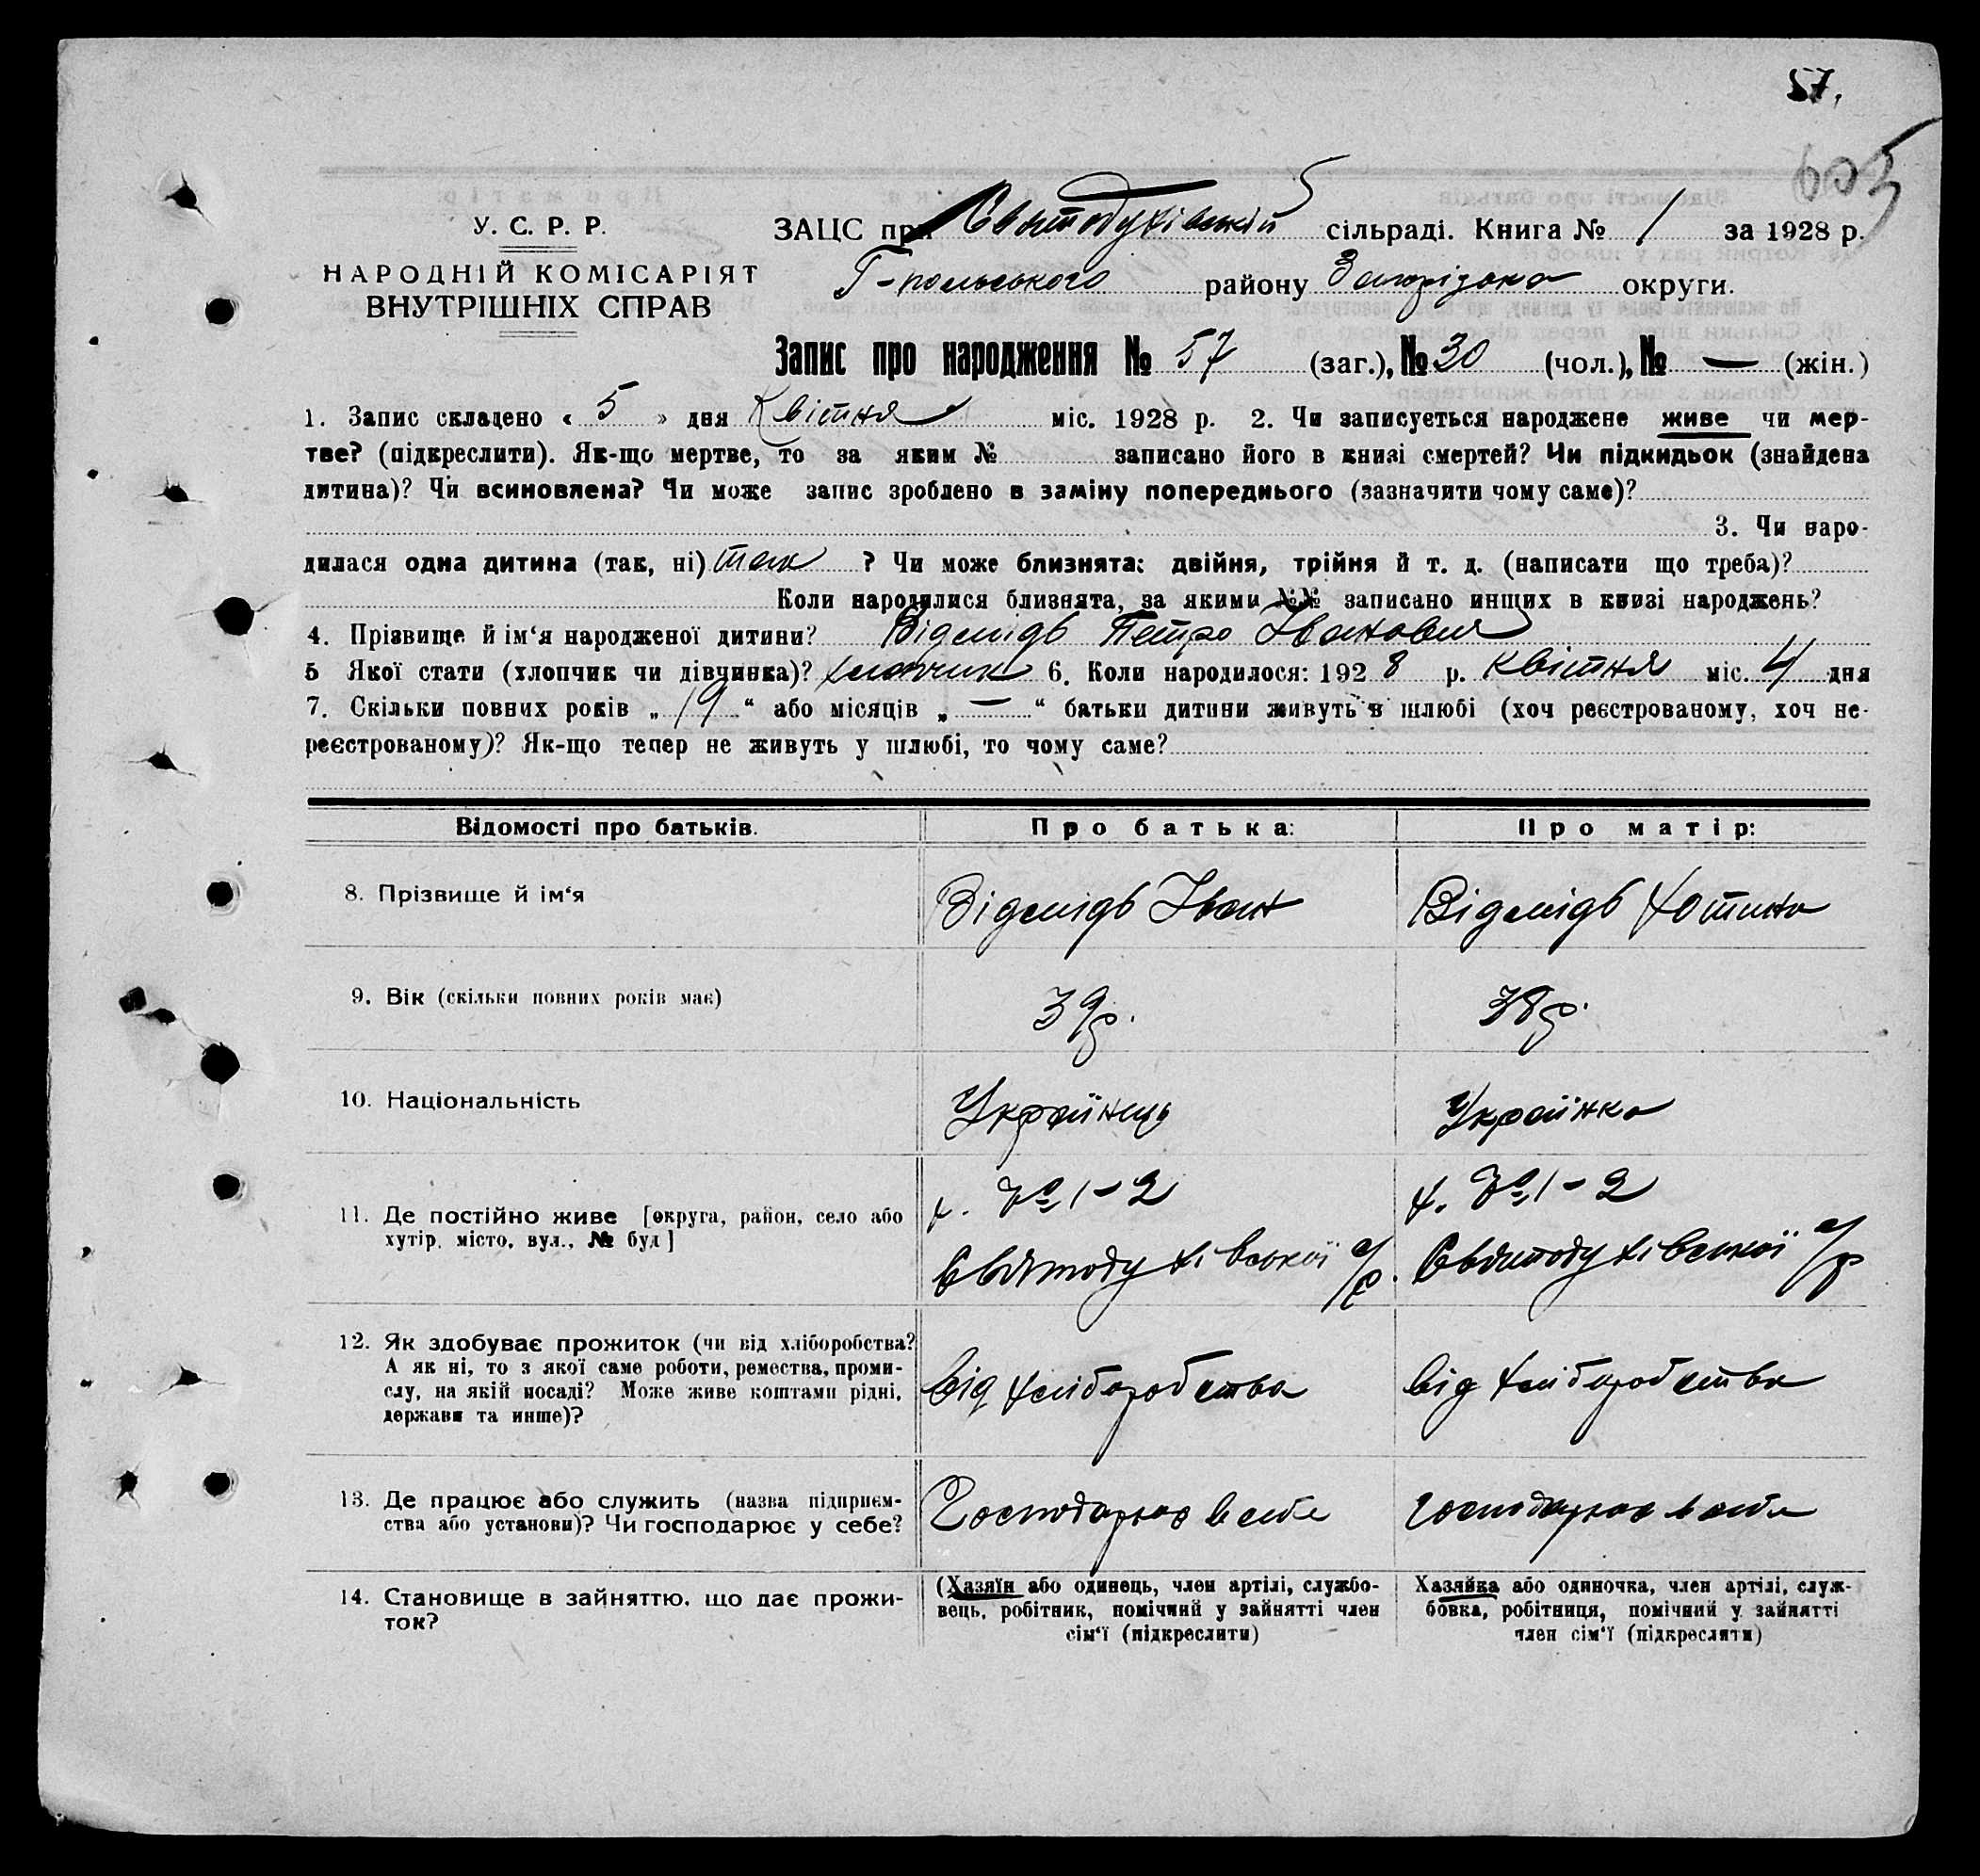 57.
605
У. С. Р. Р.
НАРОДНІЙ КОМІСАРІЯТ
ВНУТРІШНІХ СПРАВ
ЗАЦС при Святодухівській сільраді. Книга № 1 за 1928 р.
Г-польського району Запорізька округи.
Запис про народження № 57 (заг.), № 30 (чол.), № — (жін.)
1. Запис складено « 5 » дня Квітня міс. 1928 р. 2. Чи записується народжене живе чи мер-
тве? (підкреслити). Як-що мертве, то за яким № записано його в книзі смертей? Чи підкидьок (знайдена
дитина)? Чи всиновлена? Чи може запис зроблено в заміну попереднього (зазначити чому саме)?
3. Чи наро-
дилася одна дитина (так, ні) так ? Чи може близнята: двійня, трійня й т. д. (написати що треба)?
Коли народилися близнята, за якими №№ записано инщих в книзі народжень?
4. Прізвище й ім‘я народженої дитини? Петро Іванович
5 Якої стати (хлопчик чи дівчинка)? хлопчик 6. Коли народилося: 1928 р. Квітня міс. 4 дня
7. Скільки повних років „ 19 “ або місяців „ — “ батьки дитини живуть в шлюбі (хоч реєстрованому, хоч не-
реєстрованому)? Як-що тепер не живуть у шлюбі, то чому саме?
Відомості про батьків. Про батька: Про матір:
8. Прізвище й ім‘я Іван
9. Вік (скільки повних років має) 39 р. 38 р.
10. Національність Українець Українка
11. Де постійно живе [округа, район, село або
хутір, місто, вул., № буд] х. № 1-2 х. № 1-2
Святодухівської с/р. Святодухівської с/р
12. Як здобуває прожиток (чи від хліборобства?
А як ні, то з якої саме роботи, ремества, проми-
слу, на якій посаді? Може живе коштами рідні,
держави та инше)? від хліборобства від хліборобства
13. Де працює або служить (назва підприєм-
ства або установи)? Чи господарює у себе? Господарює в себе господарює в себе
14. Становище в зайняттю, що дає прожи-
ток?
(Хазяїн або одинець, член артілі, службо-
вець, робітник, помічний у зайнятті член
сім‘ї (підкреслити)
Хазяйка або одиночка, член артілі, служ-
бовка, робітниця, помічний у зайнятті
член сім‘ї (підкреслити)